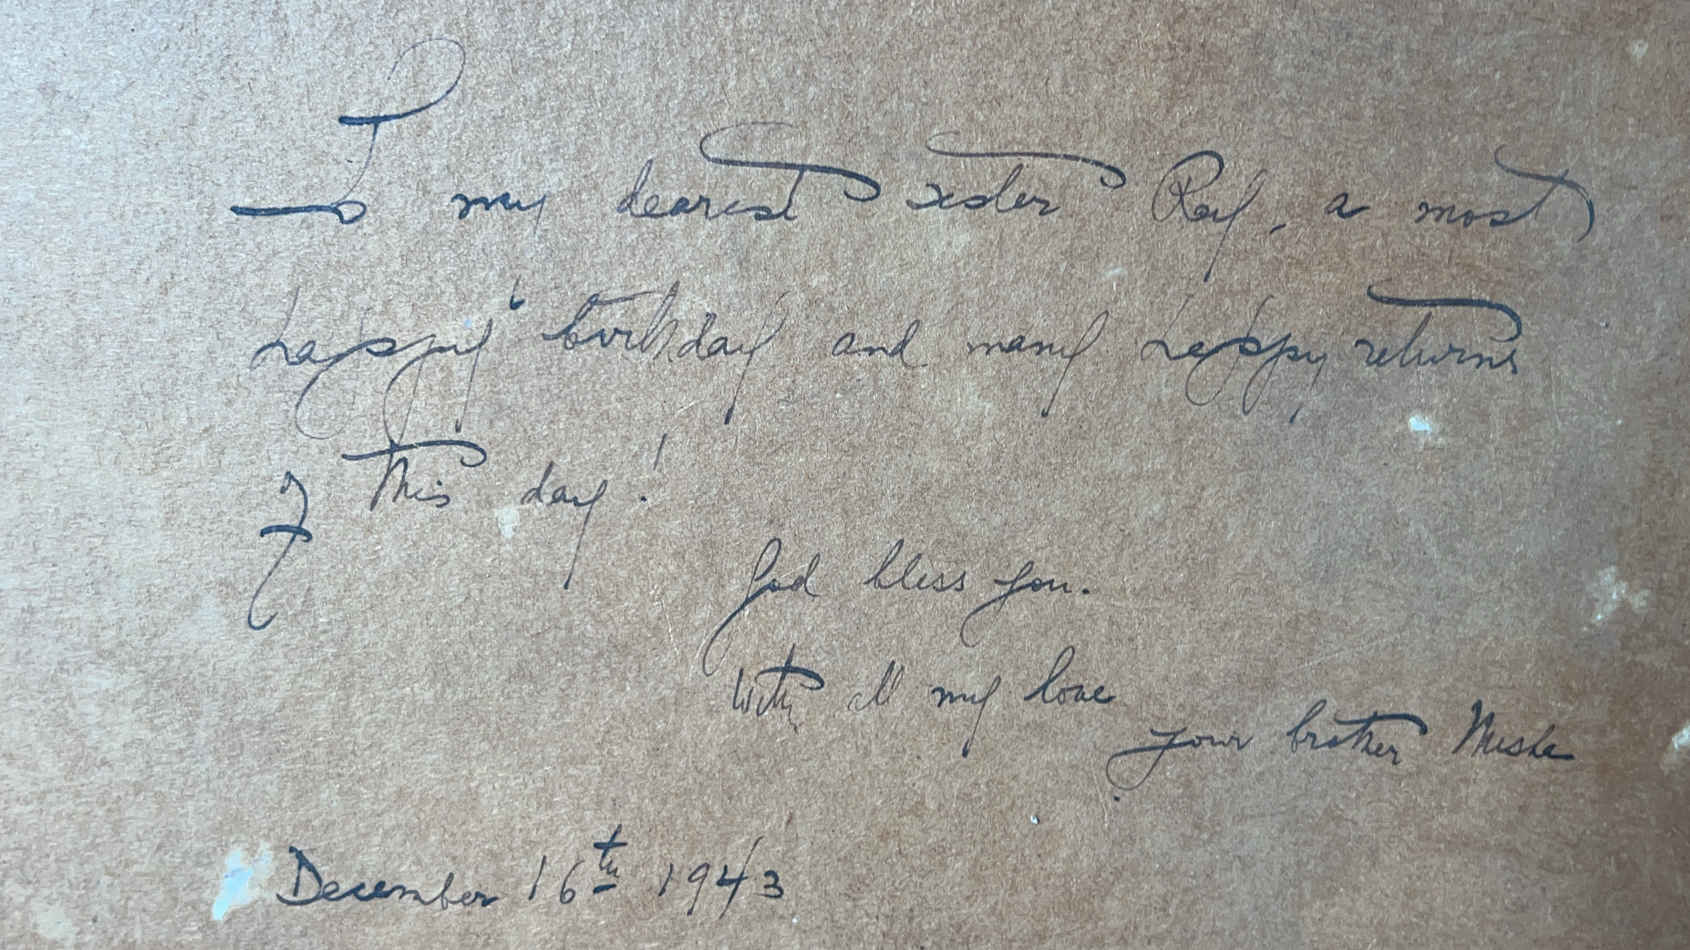 To my dearest sister Ray, a most
happy birthday and many happy returns
of this day!
God bless you.
With all my love
your brother Misha
December 16th 1943